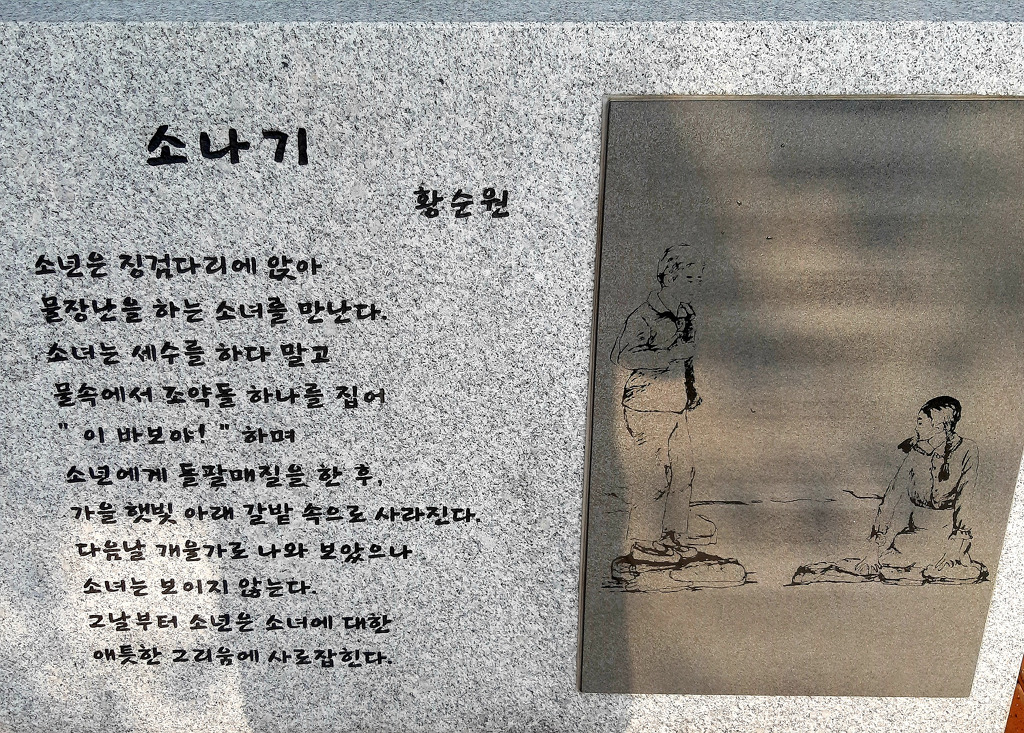 소나기
황순원
소년은 징검다리에 앉아
물장난을 하는 소녀를 만난다.
소녀는 세수를 하다 말고
물속에서 조약돌 하나를 집어
" 이 바보야! " 하며
소년에게 돌팔매질을 한 후,
가을 햇빛 아래 갈밭 속으로 사라진다.
다음날 개울가로 나와 보았으나
소녀는 보이지 않는다.
그날부터 소년은 소녀에 대한
애틋한 그리움에 사로잡힌다.